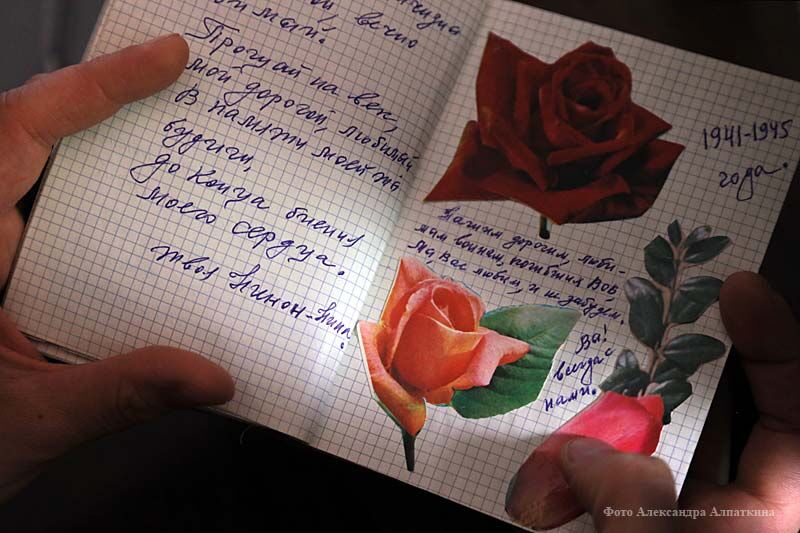 вечно
Прощай на век,
мой дорогой, любимый
В памяти моей ты
будиги,
до конца биения
моего сердца.
твоя Нинон-Нина.
1941-1945
года.
Нашим дорогим, люби-
мым воинам, погибшим ВОВ,
Мы, Вас любим, и не забудем.
Вы!
всегда с
нами.
Фото Александра Алпаткина